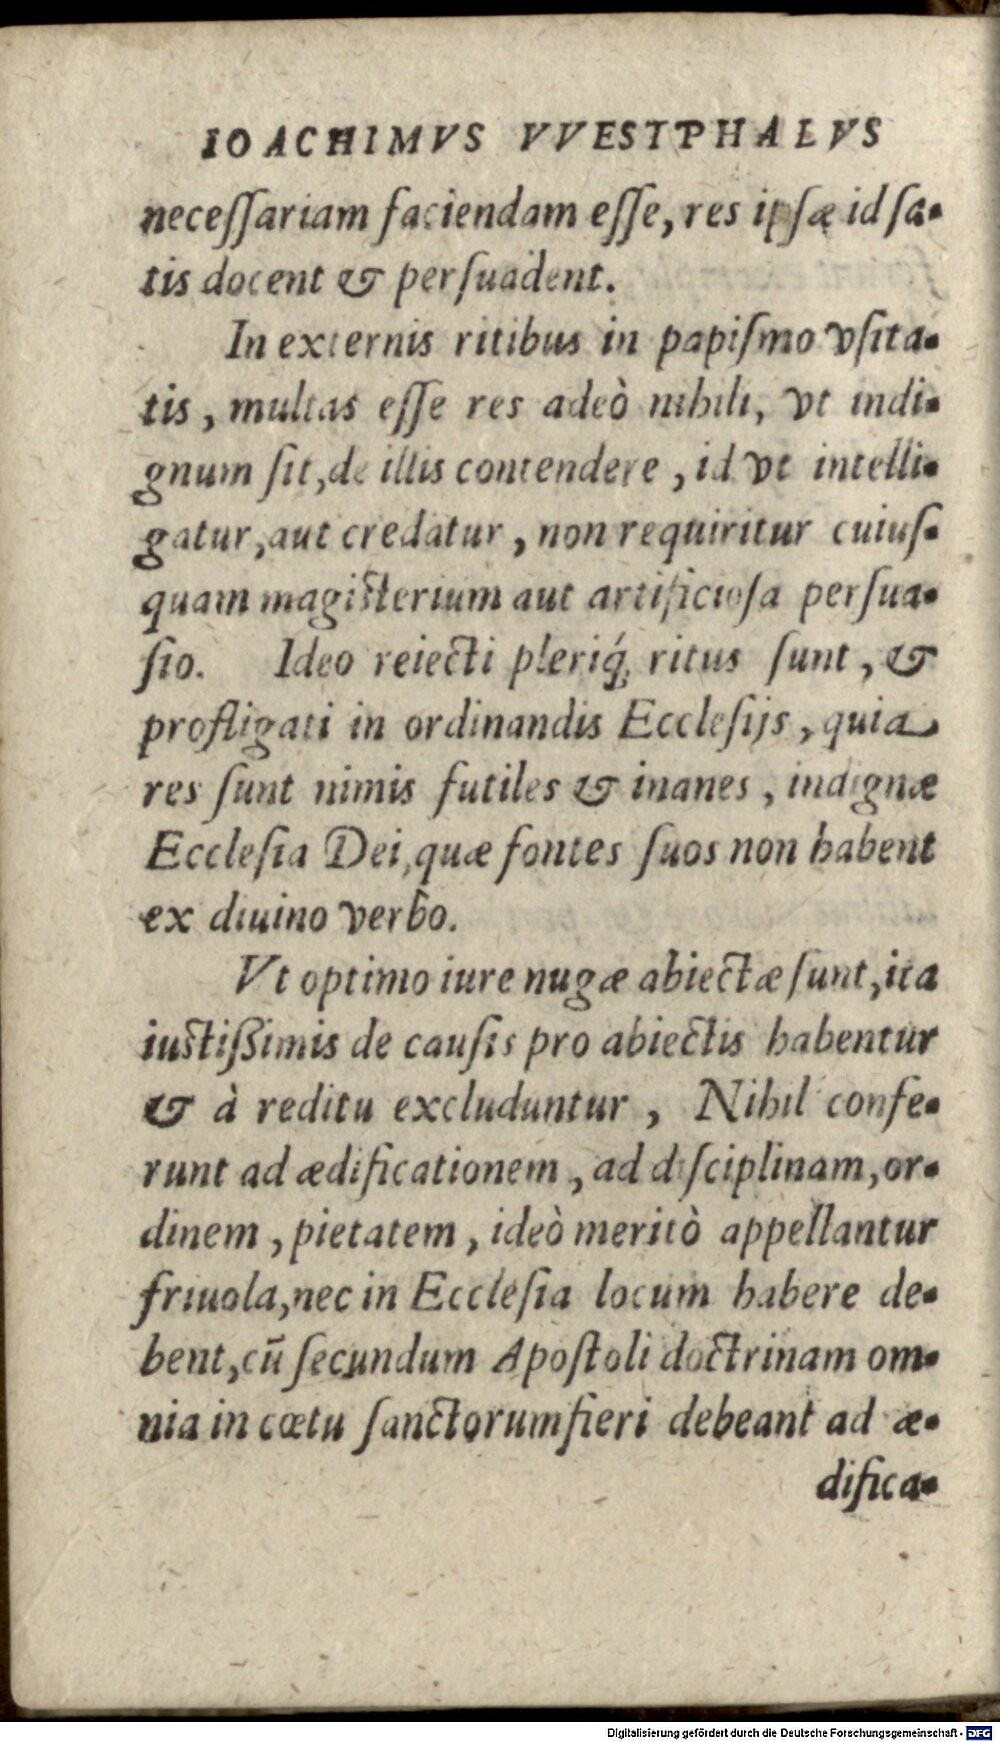 IOACHIMVS VVESTPHALVS
neceſſariam faciendam eſſe, res ipſæ id ſa-
tis docent & perſuadent.
In externis ritibus in papiſmo vſita-
tis, multas eſſe res adeò nihili, vt indi-
gnum ſit, de illis contendere, id vt intelli-
gatur, aut credatur, non requiritur cuiuſ-
quam magiſterium aut artificioſa perſua-
ſio. Ideo reiecti pleriq́; ritus ſunt, &
profligati in ordinandis Eccleſijs, quia
res ſunt nimis futiles & inanes, indignæ
Eccleſia Dei, quæ fontes ſuos non habent
ex diuino verbo.
Vt optimo iure nugæ abiectæ ſunt, ita
iuſtiſſimis de cauſis pro abiectis habentur
& à reditu excluduntur, Nihil confe-
runt ad ædificationem, ad diſciplinam, or-
dinem, pietatem, ideò meritò appellantur
friuola, nec in Eccleſia locum habere de-
bent, cū ſecundum Apoſtoli doctrinam om-
nia in cœtu ſanctorum fieri debeant ad æ-
difica-
Digitalisierung gefördert durch die Deutsche Forschungsgemeinschaft - DFG